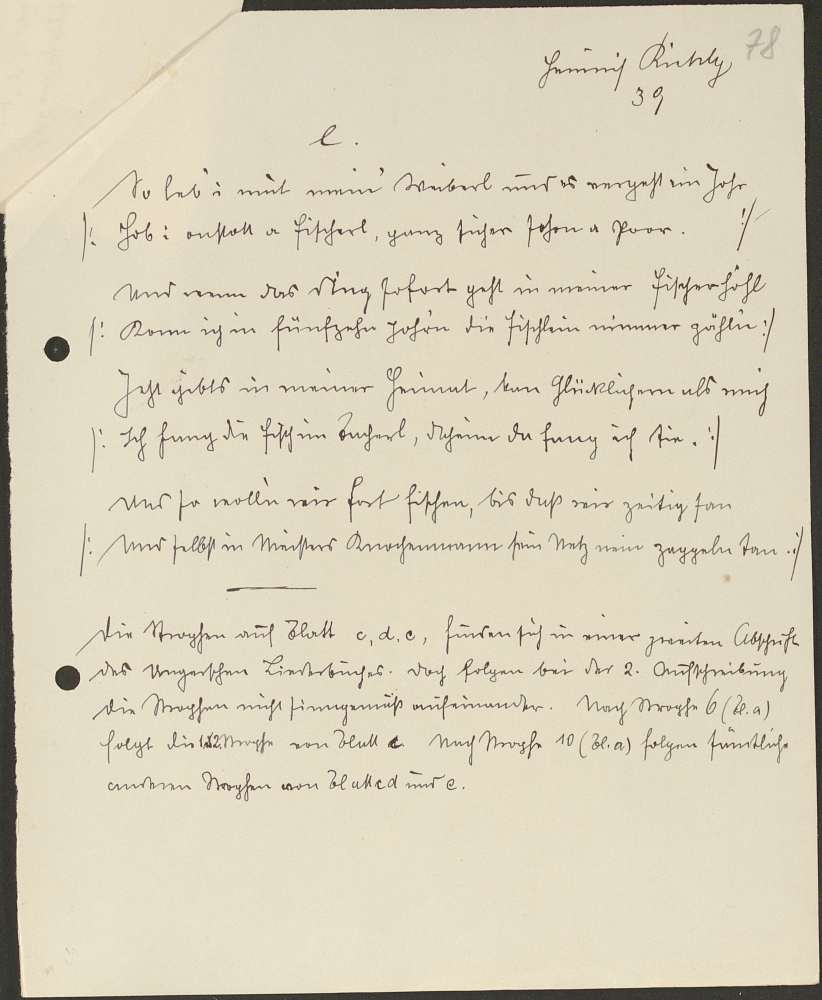 78
Heinrich
39
e.
So leb' i mit mein' Weiberl und es vergeht ein Johr
/: Hob i onstott a Fischerl, ganz sicher schon a Poor. :/
Und wenn das Ding sofort geht in meiner Fischerhöhl
/: Konn ich in fünfzehn Johrn die Fischlein nimmer zähln :/
Jetzt gibts in meiner Heimat, kan Glücklichern als mich
/: Ich fang die Fisch im Bacherl, daheim da fang ich sie. :/
Und so woll'n wir fort fischen, bis daß wir zeitig san
/: Und selbst in Meisters Knochenmann sein Netz nein zappeln tan :/
Die Strophen auf Blatt c, d, e, finden sich in einer zweiten Abschrift
des Ungerschen Liederbuches. Doch folgen bei der 2. Aufschreibung
die Strophen nicht sinngemäß aufeinander. Nach Strophe 6 (Bl. a)
folgt die 1. u. 2. Strophe von Blatt e Nach Strophe 10 (Bl. a) folgen sämtliche
anderen Strophen von Blatt c d und e.